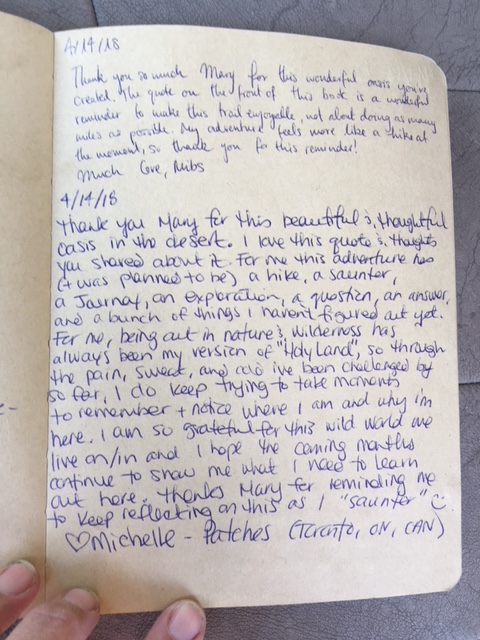 4/14/18
Thank you so much Mary for this wonderful oasis you've
created. The quote on the front of this book is a wonderful
reminder to make this trail enjoyable, not about doing as many
miles as possible. My adventure feels more like a hike at
the moment, so thank you for this reminder!
Much Love, Nibs
4/14/18
Thank you Mary for this beautiful & thoughtful
oasis in the desert. I love this quote & thoughts
you shared about it. For me this adventure has
(+ was planned to be) a hike, a saunter,
a Journey, an exploration, a question, an answer,
and a bunch of things I haven't figured out yet.
For me, being out in nature & wilderness has
always been my version of "Holy Land", so through
the pain, sweat, and cold ive been challenged by
so far, I do keep trying to take moments
to remember + notice where I am and why i'm
here. I am so grateful for this wild world we
live on/in and I hope the coming months
continue to show me what I need to learn
out here. Thanks Mary for reminding me
to keep reflecting on this as I "saunter" ☺
♡Michelle - Patches (Toronto, ON, CAN)